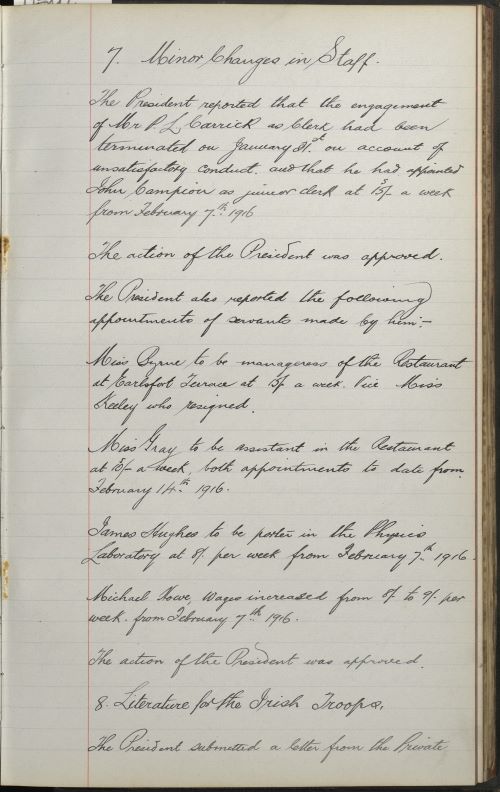 7. Minor Changes in Staff.
The President reported that the engagement
of Mr P. L. Carrick as Clerk had been
terminated on January 31st on account of
unsatisfactory conduct. and that he had appointed
John Campion as junior clerk at 15/- a week
from February 7th. 1916
The action of the President was approved.
The President also reported the following
appointments of servants made by him:-
Miss Byrne to be manageress of the Restaurant
at Earlsfort Terrace at 15/- a week. Vice Miss
Keeley who resigned.
Miss Gray to be assistant in the Restaurant
at 10/- a week, both appointments to date from
February 14th 1916.
James Hughes to be porter in the Physics
Laboratory at 8/. per week from February 7th 1916.
Michael Howe, Wages increased from 8/- to 9/- per
week. from February 7th 1916.
The action of the President was approved.
8. Literature for the Irish Troops.
The President submitted a letter from the Private